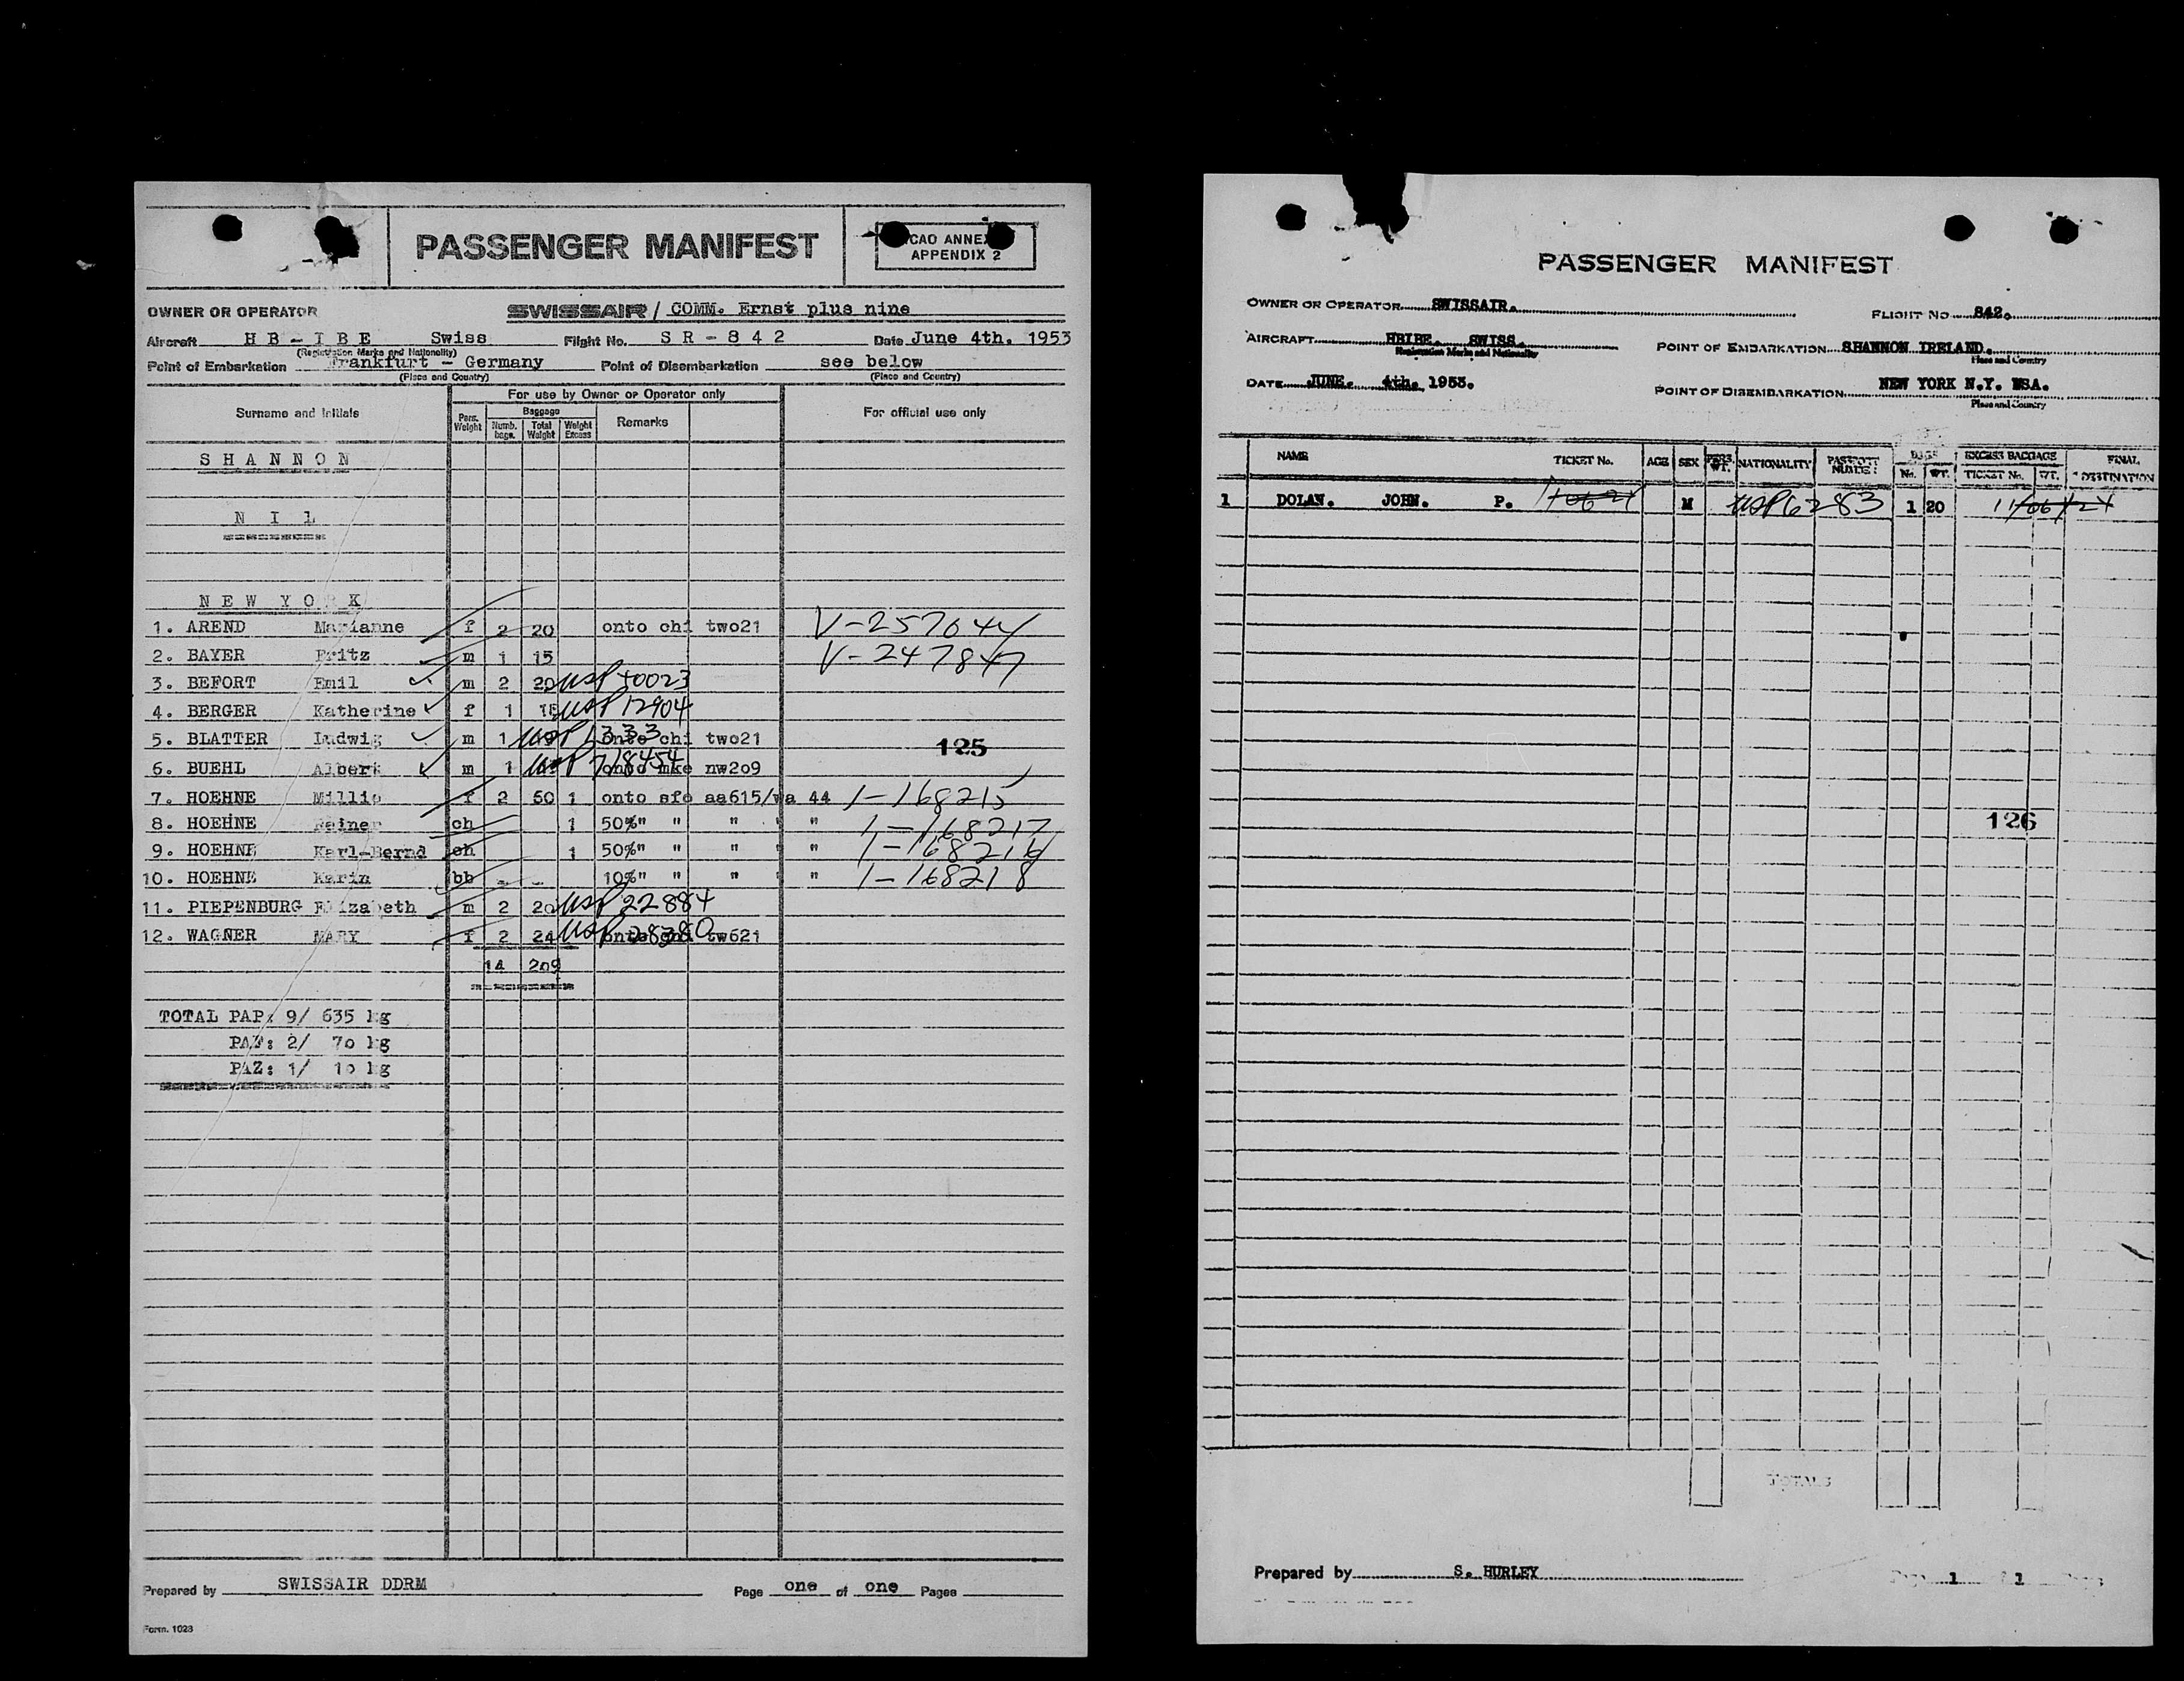 PASSENGER MANIFEST
ICAO ANNEX
APPENDIX 2
OWNER OR OPERATOR SWISSAIR / COMM. Ernst plus nine
Aircraft HB-IBE Swiss Flight No. SR-842 Date June 4th. 1953
(Registration Marks and Nationality)
Point of Embarkation Frankfurt - Germany Point of Disembarkation see below
(Place and Country) (Place and Country)
For use by Owner or Operator only
Surname and Initials Pers. Weight Baggage Numb. bags. Total Weight Weight Excess Remarks For official use only
SHANNON
NIL
NEW YORK
1. AREND Marianne f 2 20 onto chi two21 V-257644
2. BAYER Fritz m 1 15 V-247847
3. BEFORT Emil m 2 20 USP 40023
4. BERGER Katherine f 1 15 USP 12904
5. BLATTER Ludwig m 1 USP 1333 onto chi two21
125
6. BUEHL Albert m 1 USP 718454 onto mke nw209
7. HOEHNE Millie f 2 50 1 onto sfo aa615/wa 44 1-168215
8. HOEHNE Rainer ch 1 50%" " " " 1-168217
9. HOEHNE Karl-Bernd ch 1 50%" " " " 1-168216
10. HOEHNE Karin bb - - 10%" " " " 1-168218
11. PIEPENBURG Elizabeth m 2 20 USP 22884
12. WAGNER MARY f 2 24 USP 28380 onto chi tw621
14 209
TOTAL PAP: 9/ 635 kg
PAF: 2/ 70 kg
PAZ: 1/ 10 kg
Prepared by SWISSAIR DDRM Page one of one Pages
Form. 1028
PASSENGER MANIFEST
OWNER OR OPERATOR SWISSAIR. FLIGHT No 842.
AIRCRAFT HBIBE. SWISS. POINT OF EMBARKATION SHANNON IRELAND.
Registration Marks and Nationality Place and Country
DATE JUNE. 4th. 1953. POINT OF DISEMBARKATION NEW YORK N.Y. USA.
Place and Country
NAME TICKET No. AGE SEX PERS. WT. NATIONALITY PASSPORT NUMBER BAGS No. WT. EXCESS BAGGAGE TICKET No. WT. FINAL DESTINATION
1 DOLAN. JOHN. P. M USP 6283 1 20
126
TOTALS
Prepared by S. HURLEY 1 1